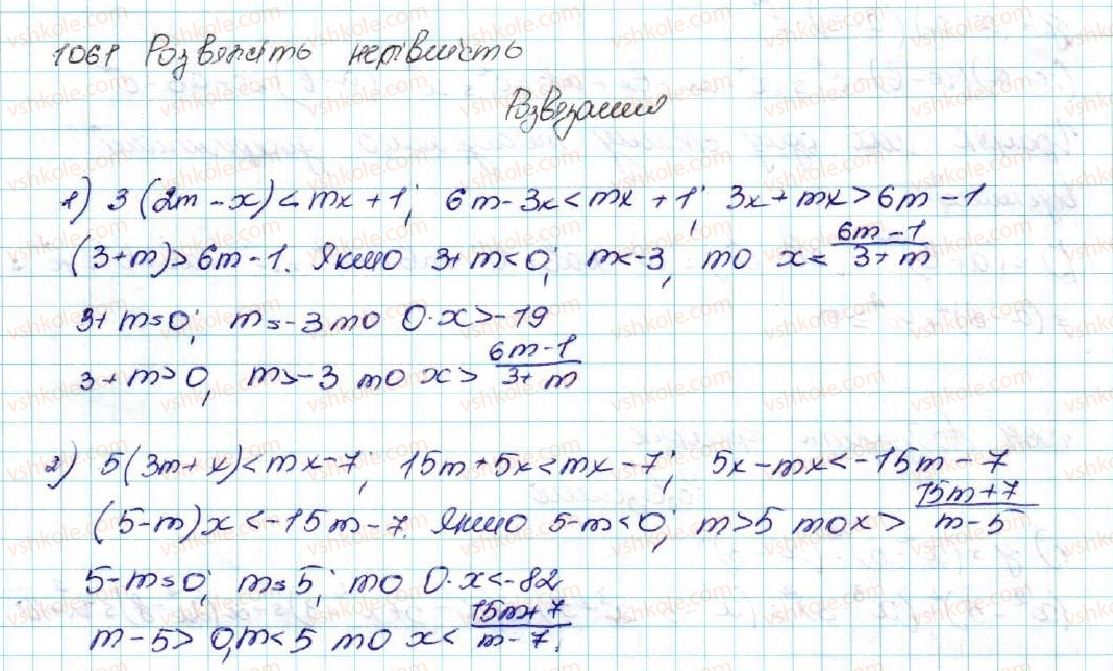 1061 Розвяжіть нерівність
Розвязання
1) 3(2m-x)<mx+1; 6m-3x<mx+1; 3x+mx>6m-1
(3+m)>6m-1. Якщо 3+m<0; m<-3, то x< \frac{6m-1}{3+m}
3+m=0; m=-3 то 0·x>-19
3+m>0, m>-3 то x> \frac{6m-1}{3+m}
2) 5(3m+x)<mx-7; 15m+5x<mx-7; 5x-mx<-15m-7
(5-m)x<-15m-7. Якщо 5-m<0; m>5 то x> \frac{15m+7}{m-5}
5-m=0; m=5; то 0·x<-82
m-5>0, m<5 то x< \frac{15m+7}{m-7}.